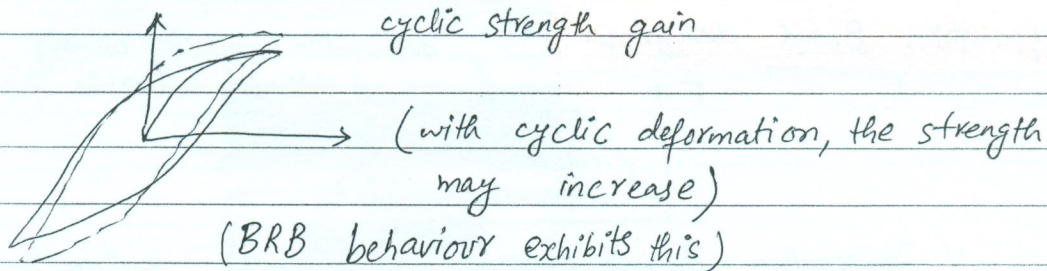 cyclic strength gain
(with cyclic deformation, the strength
may increase)
(BRB behaviour exhibits this)